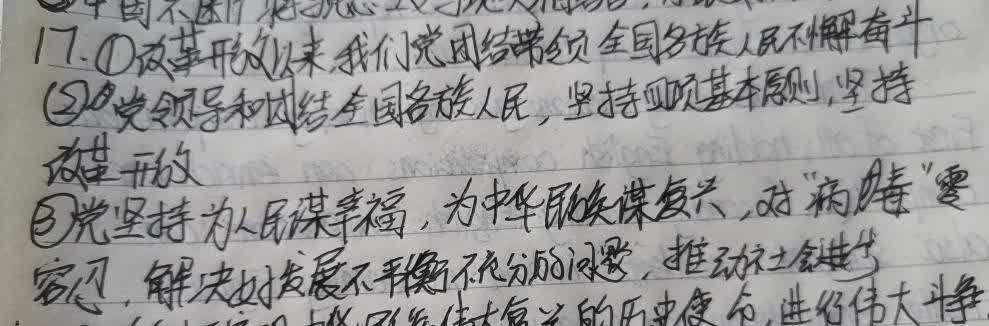 中国不断将
17.①改革开放以来,我们党团结带领全国各族人民不懈奋斗
②党领导和团结全国各族人民,坚持四项基本原则,坚持
改革开放
③党坚持为人民谋幸福,为中华民族谋复兴,对“病毒”零
容忍,解决好发展不平衡不充分的问题,推动社会进步
伟大复兴的历史使命,进行伟大斗争